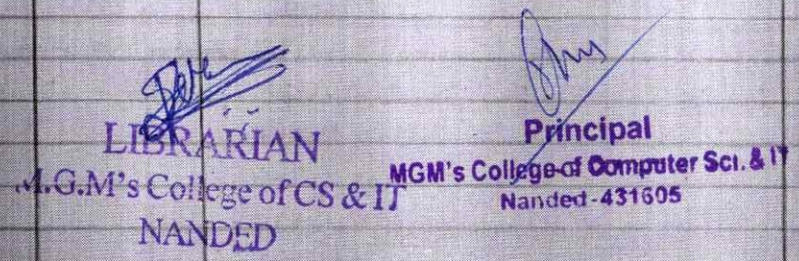 LIBRARIAN
M.G.M's College of CS & IT
NANDED
Principal
MGM's College of Computer Sci. & IT
Nanded-431605